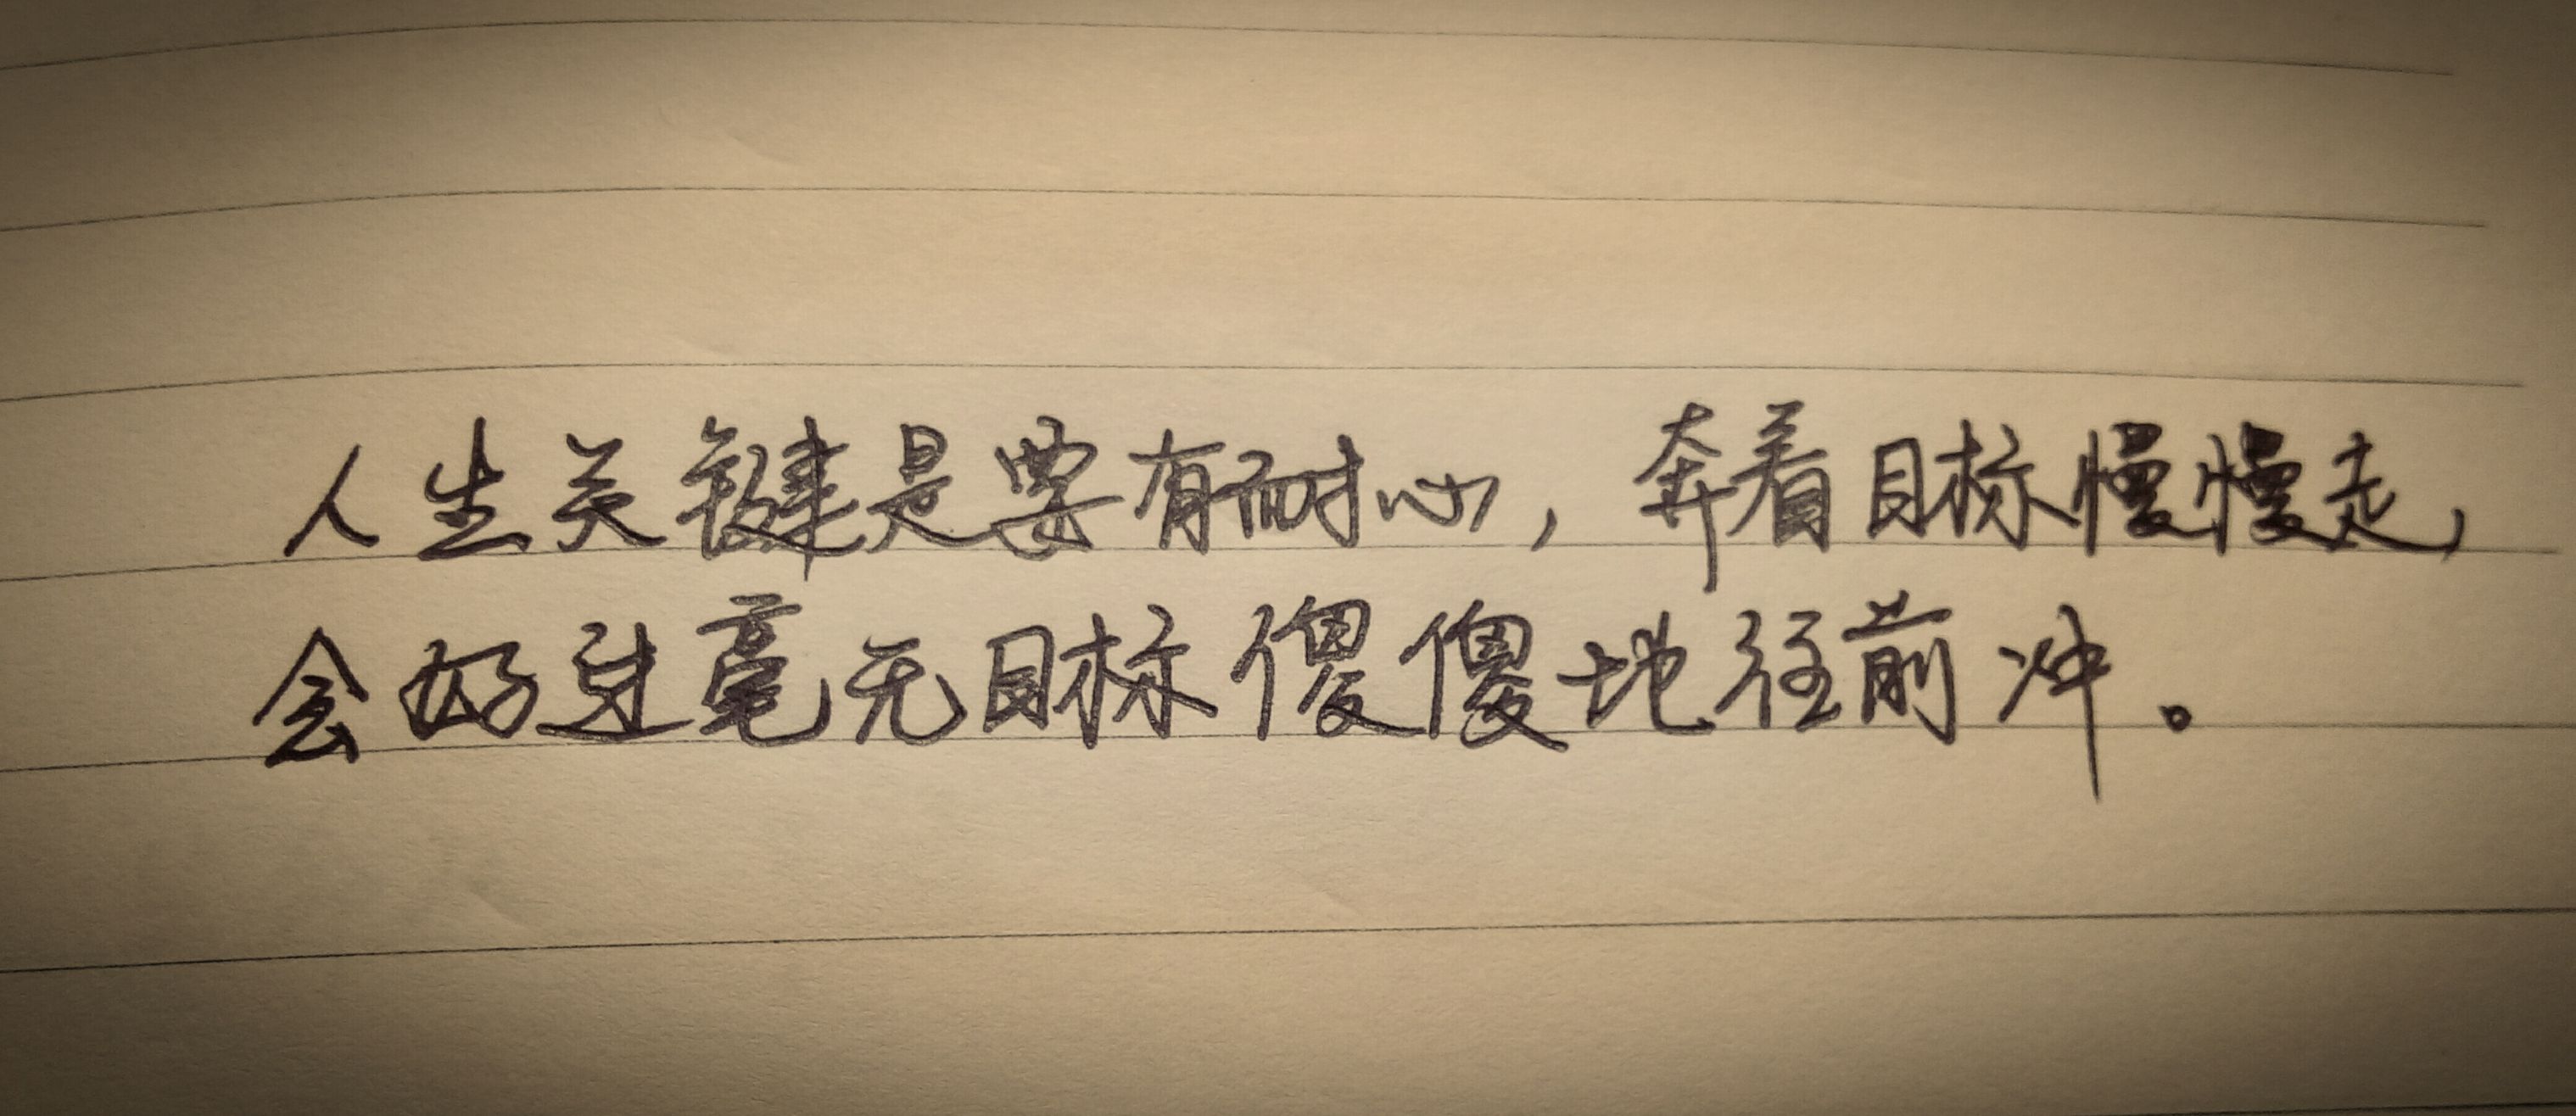 人生关键是要有耐心，奔着目标慢慢走，
会好过毫无目标傻傻地往前冲。